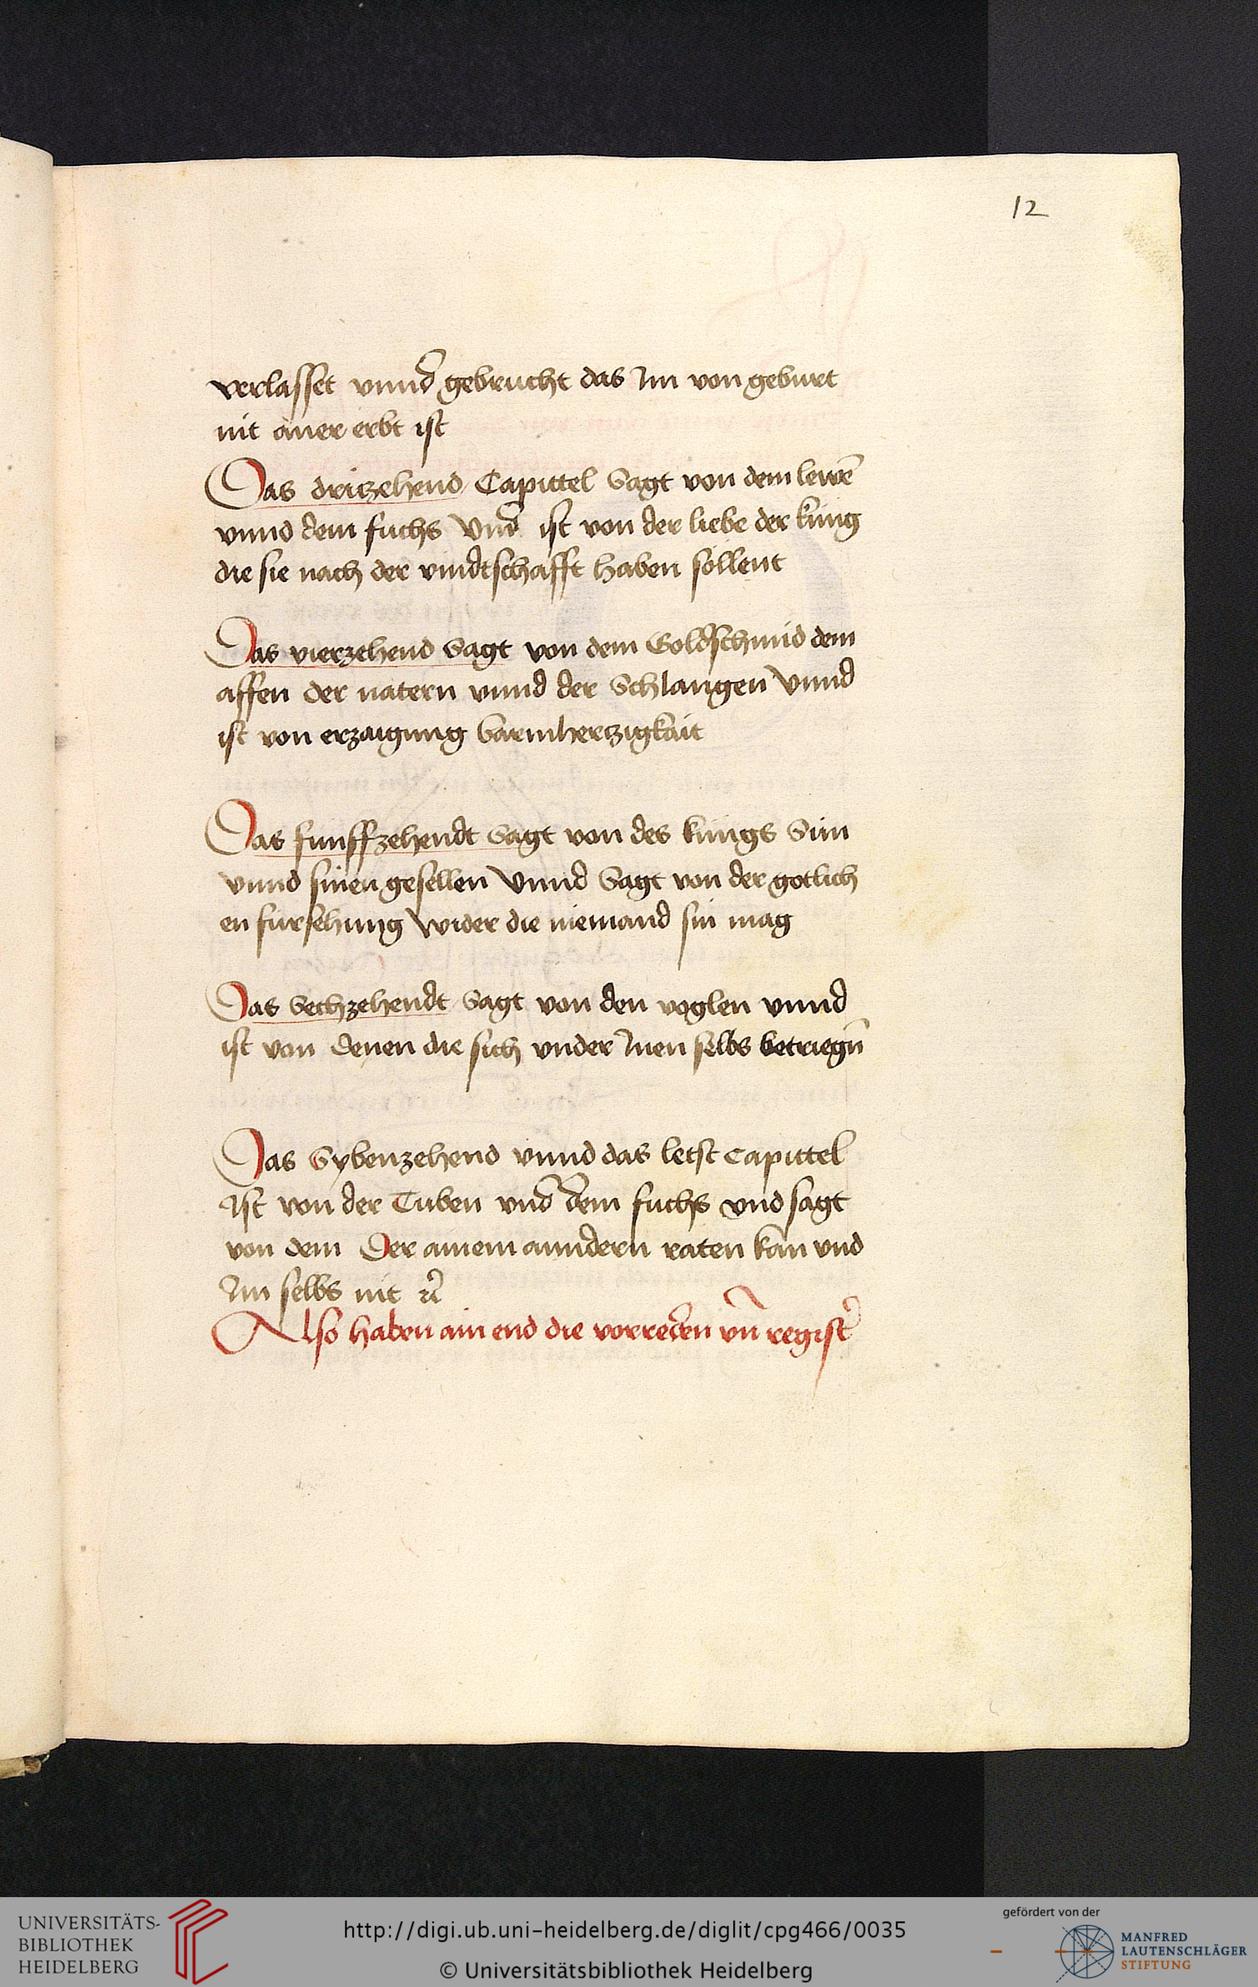 12
verlasset vnnd gebrucht das Im von geburt
nit aner erbt ist
Das dritzehend Capittel Sagt von dem lewẽ
vnnd dem fuchs Vnd ist von der liebe der kúng
die sie nach der vindtschafft haben söllent
Das vierzehend Sagt von dem Goldschmid dem
affen der natern vnnd der Schlangen Vnnd
ist von erzaigung barmhertzigkait
Das funffzehendt Sagt von des kúngs Sún
vnnd sinen gesellen Vnnd Sagt von der gotlich
en fúrsehung wider die niemand sin mag
Das Sechzehendt Sagt von den voglen vnnd
ist von denen die sich vnder Inen selbs betriegñ
Das Sybenzehend vnnd das letst Capittel
Ist von der Tuben vnd dem fuchs vnd sagt
von dem Der ainem anndern raten kan vnd
Im selbs nit
Also haben ain end die vorreden vñ regist
UNIVERSITÄTS-
BIBLIOTHEK
HEIDELBERG
http://digi.ub.uni-heidelberg.de/diglit/cpg466/0035
© Universitätsbibliothek Heidelberg
gefördert von der
MANFRED
LAUTENSCHLÄGER
STIFTUNG